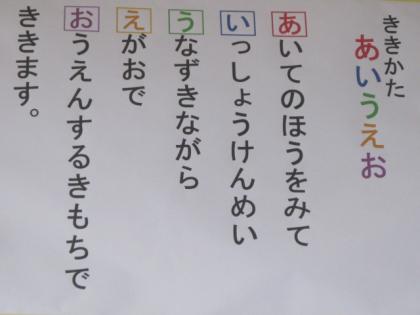 ききかた
あいうえお
あいてのほうをみて
いっしょうけんめい
うなずきながら
えがおで
おうえんするきもちで
ききます。